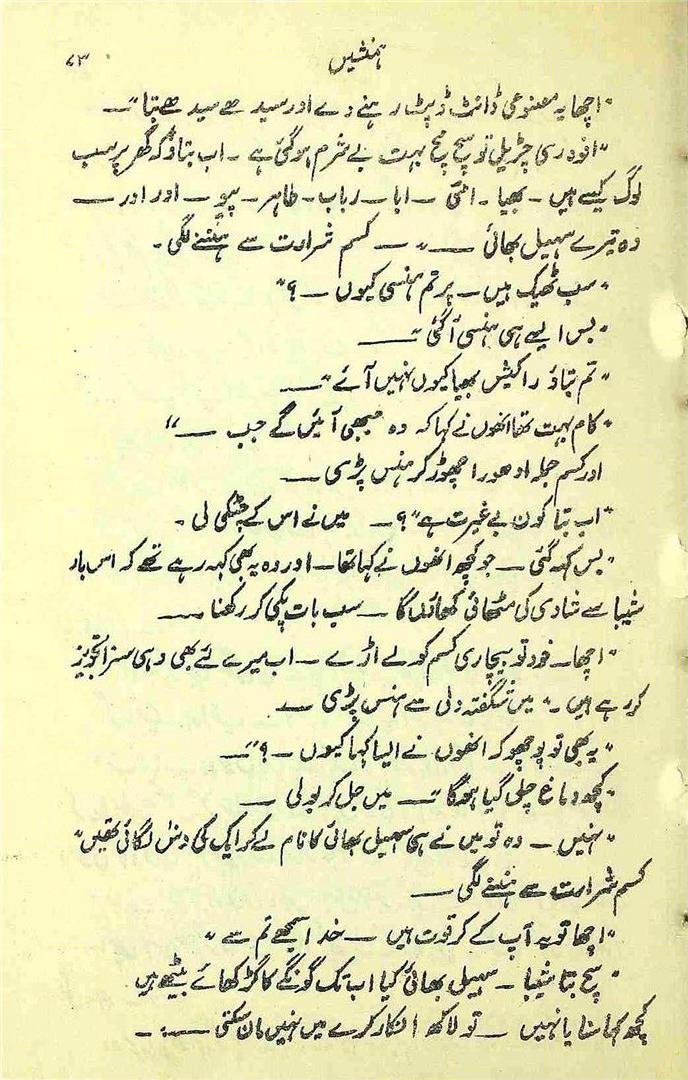 ہمنشیں ۸۳
"اچھا یہ مصنوعی ڈانٹ ڈپٹ رہنے دے اور سیدھے سیدھے بتا"—
"افوہ ری چڑیل تو سچ مچ بہت بے شرم ہو گئی ہے ۔ اب بتاؤ کہ گھر پر سب
لوگ کیسے ہیں ۔ بھیا ۔ امّی — ابا — رباب — طاہر — پپو — اور اور —
وہ تیرے سہیل بھائی —" — کسم شرارت سے ہنسنے لگی ۔
"سب ٹھیک ہیں — پر تم ہنسی کیوں — ؟"
"بس ایسے ہی ہنسی آ گئی" —
"تم بتاؤ راکیش بھیا کیوں نہیں آئے" —
"کام بہت تھا انھوں نے کہا کہ وہ جبھی آئیں گے جب —"
اور کسم جملہ ادھورا چھوڑ کر ہنس پڑی —
"اب بتا کون بے غیرت ہے" ؟ — میں نے اس کے چٹکی لی ۔
"بس کہہ گئی — جو کچھ انھوں نے کہا تھا — اور وہ یہ بھی کہہ رہے تھے کہ اس بار
شیبا سے شادی کی مٹھائی کھاؤں گا — سب بات پکی کر رکھنا —
"اچھا — خود تو بیچاری کسم کو لے اڑے — اب میرے لئے بھی وہی سزا تجویز
کر رہے ہیں ۔" میں شگفتہ دلی سے ہنس پڑی —
"یہ بھی تو پوچھو کہ انھوں نے ایسا کہا کیوں — ؟" —
"کچھ دماغ چلی گیا ہوگا" — میں جل کر بولی —
"نہیں — وہ تو میں نے ہی سہیل بھائی کا نام لے کر ایک کی دس لگائی تھیں"
کسم شرارت سے ہنسنے لگی —
"اچھا تو یہ آپ کے کرتوت ہیں — خدا سمجھے تم سے"
"سچ بتا شیبا — سہیل بھائی کیا اب تک گونگے کا گڑ کھائے بیٹھے ہیں
کچھ کہا سنا یا نہیں — تو لاکھ انکار کرے میں نہیں مان سکتی — ۔